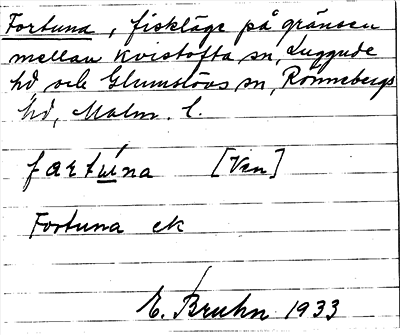 Fortuna, fiskläge på gränsen
mellan Kvistofta sn, Luggude
hd och Glumslövs sn, Rönnebergs
hd, Malm. l.
fart[Ven]
Fortuna ek
E. Bruhn 1933